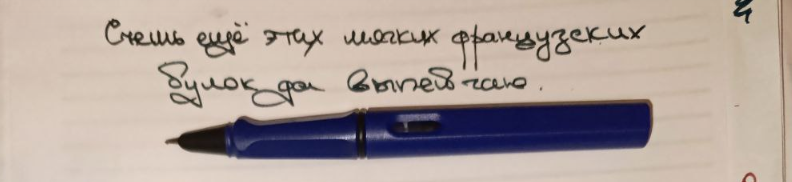 Съешь ещё этих мягких французских
булок да выпей чаю.